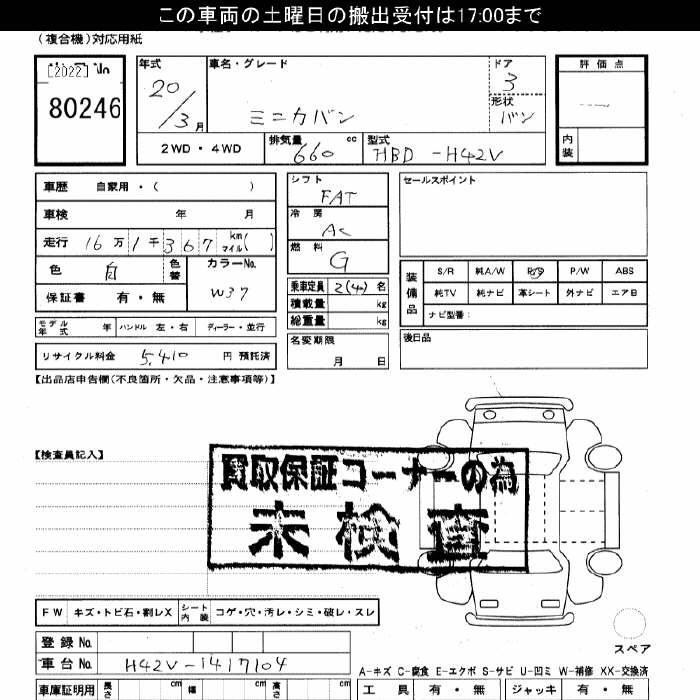 この車両の土曜日の搬出受付は17:00まで
(複合機)対応用紙
[2022] No
80246
年式 20/3月
車名・グレード
ミニカバン
ドア 3
形状 バン
評価点
内装
2WD・4WD
排気量 660 cc
型式 HBD-H42V
車歴 自家用・( )
車検 年 月
走行 16万1千367 km マイル( )
色 白 色替
カラーNo. W37
保証書 有・無
モデル年式 年 ハンドル 左・右 ディーラー・並行
リサイクル料金 5,410 円 預託済
シフト FAT
冷房 AC
燃料 G
乗車定員 2(4) 名
積載量 kg
総重量 kg
名変期限 月 日
セールスポイント
装備品
S/R 純A/W P/S P/W ABS
純TV 純ナビ 革シート 外ナビ エアB
ナビ型番:
後日品
【出品店申告欄(不良箇所・欠品・注意事項等)】
【検査員記入】
買取保証コーナーの為
未検査
FW キズ・トビ石・割レX シート内装 コゲ・穴・汚レ・シミ・破レ・スレ
スペア
登録No.
車台No. H42V-1417104
A-キズ C-腐食 E-エクボ S-サビ U-凹ミ W-補修 XX-交換済
車庫証明用 長さ cm 幅 cm 高さ cm
工具 有・無 ジャッキ 有・無